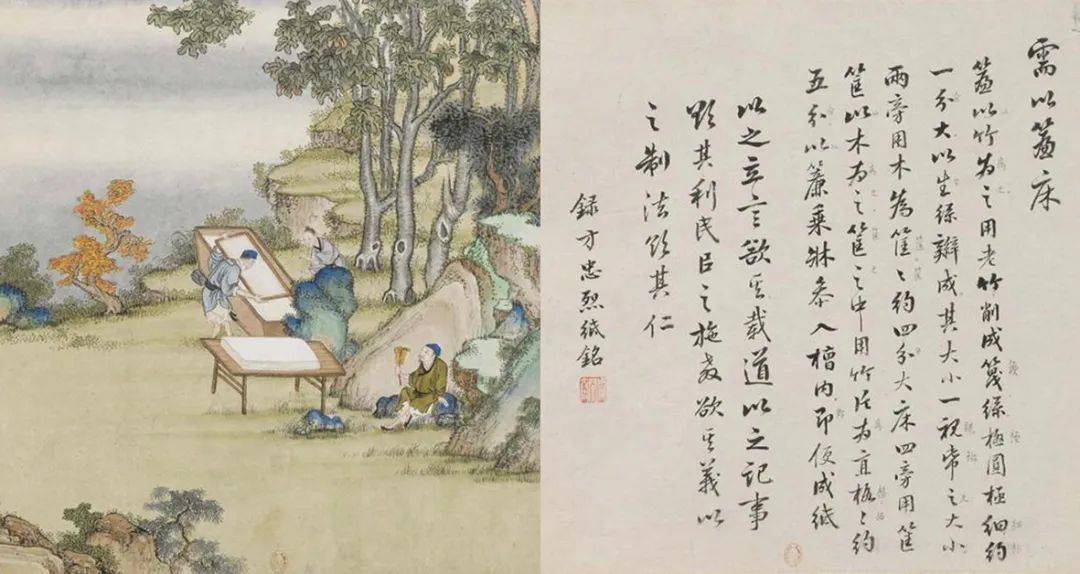 需以簾床
簾以竹为之用老竹削成篾絲極圓極細約
一分大以生絲辮成其大小一視帋之大小
兩旁用木為筐〻約四分大床四旁用筐
筐以木为之筐之中用竹片为直格〻約
五分以簾乘牀叅入槽内即便成紙
以之立言欲其載道以之記事
欲其利民以之施教欲其義以
之制法欲其仁
録方忠烈紙銘